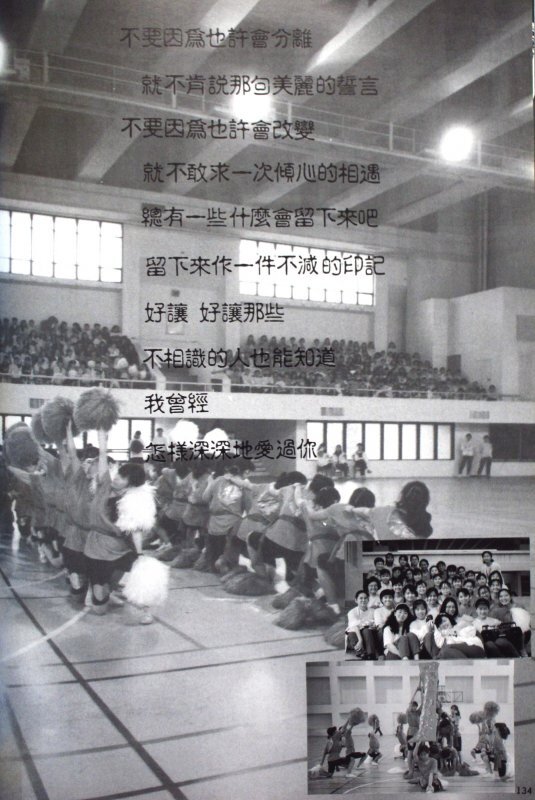 不要因為也許會分離
就不肯説那句美麗的誓言
不要因為也許會改變
就不敢求一次傾心的相遇
總有一些什麼會留下來吧
留下來作一件不減的印記
好讓 好讓那些
不相識的人也能知道
我曾經
怎樣深深地愛過你
134